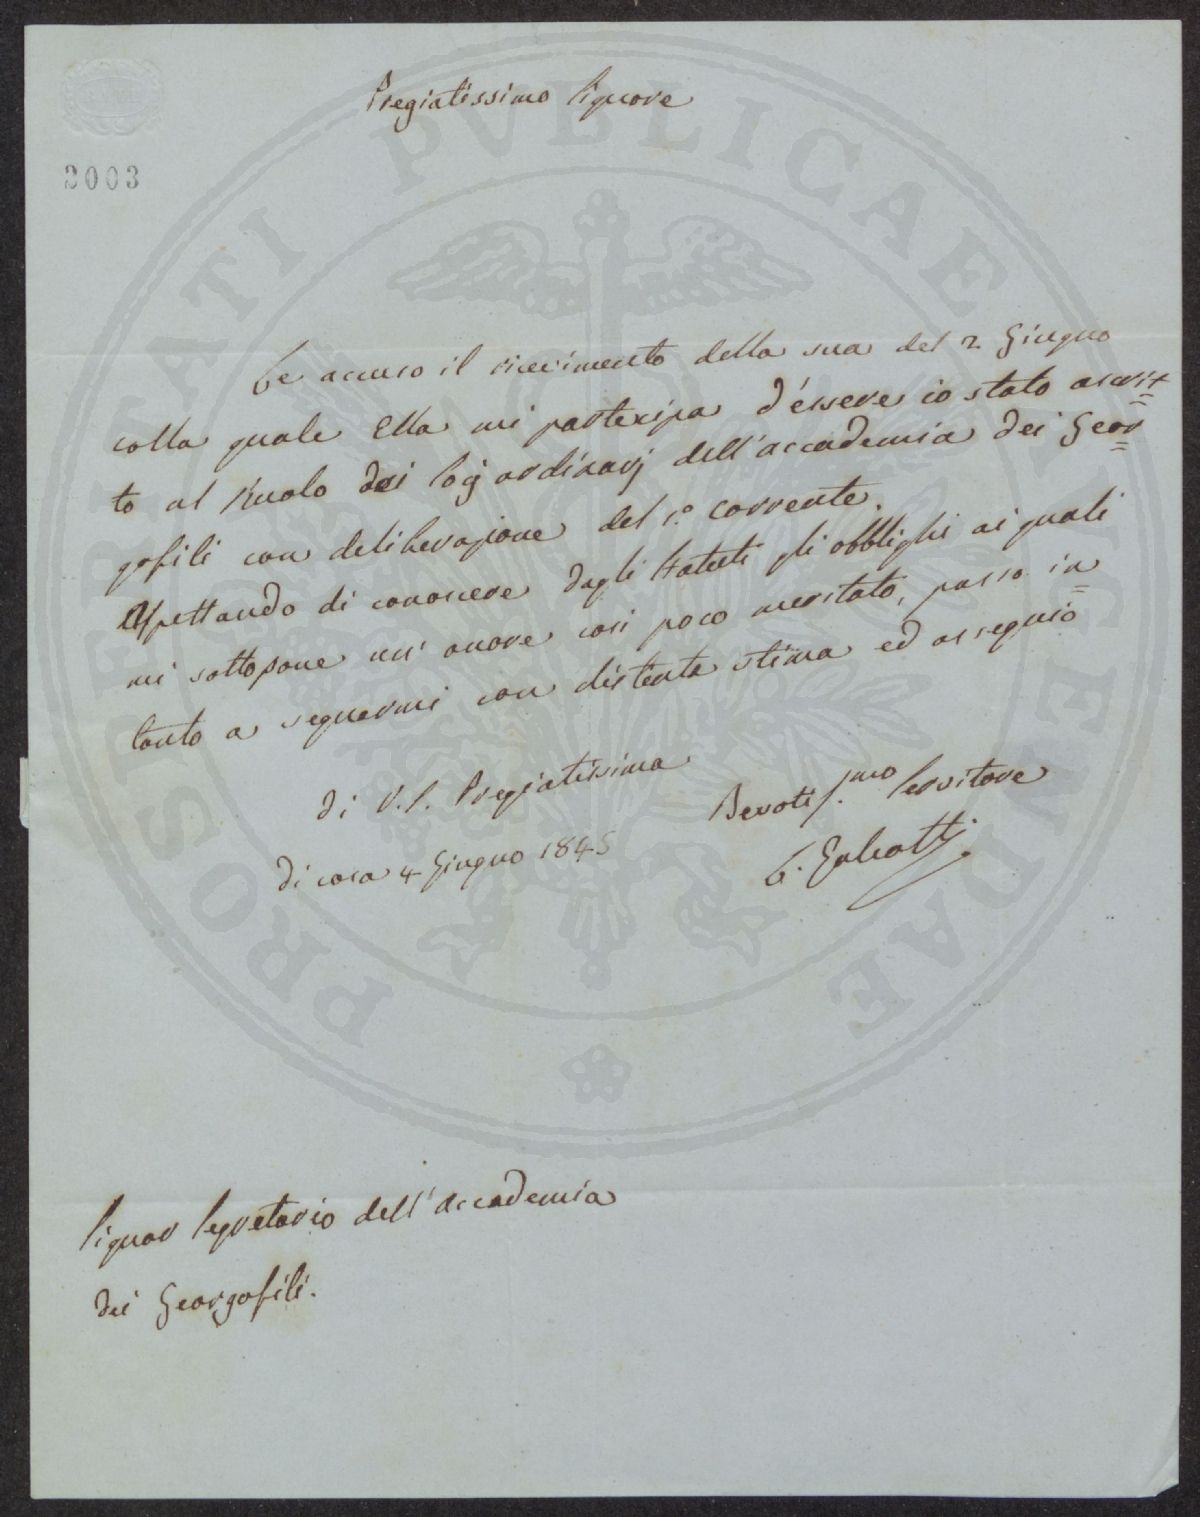 Pregiatissimo Signore
2003
Le accuso il ricevimento della sua del 2 Giugno
colla quale Ella mi partecipa d'essere io stato ascrit=
to al Ruolo dei Socj ordinarj dell'accademia dei Geor=
gofili con deliberazione del 1.° corrente.
Aspettando di conoscere dagli Statuti gli obblighi ai quali
mi sottopone un' onore così poco meritato, passo in=
tanto a segnarmi con distinta stima ed ossequio
di V. S. Pregiatissima
Devotis.mo Servitore
di casa 4 Giugno 1845
L. Galeotti
Signor Segretario dell'Accademia
dei Georgofili.
PROSPERITATI PVBLICAE AVGENDAE